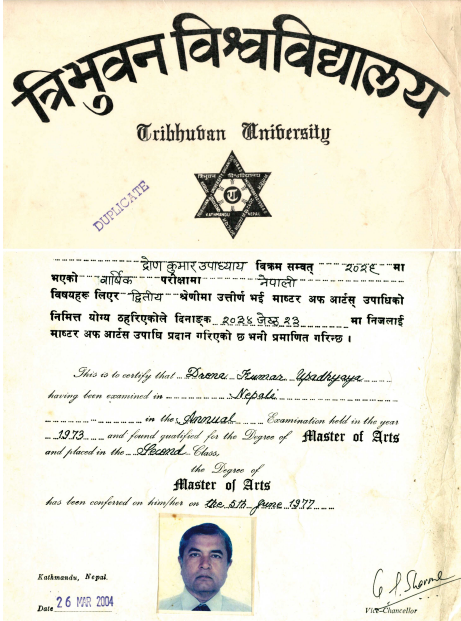 त्रिभुवन विश्वविद्यालय
Tribhuvan University
त्रिभुवन विश्वविद्यालय
KATHMANDU NEPAL
DUPLICATE
द्रोण कुमार उपाध्याय विक्रम सम्वत् २०२९ मा
भएको वार्षिक परीक्षामा नेपाली
विषयहरू लिएर द्वितीय श्रेणीमा उत्तीर्ण भई माष्टर अफ आर्टस् उपाधिको
निमित्त योग्य ठहरिएकोले दिनाङ्क २०३४ जेष्ठ २३ मा निजलाई
माष्टर अफ आर्टस उपाधि प्रदान गरिएको छ भनी प्रमाणित गरिन्छ ।
This is to certify that Drona Kumar Upadhyaya
having been examined in Nepali
in the Annual Examination held in the year
1973 and found qualified for the Degree of Master of Arts
and placed in the Second Class,
the Degree of
Master of Arts
has been conferred on him/her on the 5th June 1977
Kathmandu, Nepal.
Date 26 MAR 2004
Vice-Chancellor